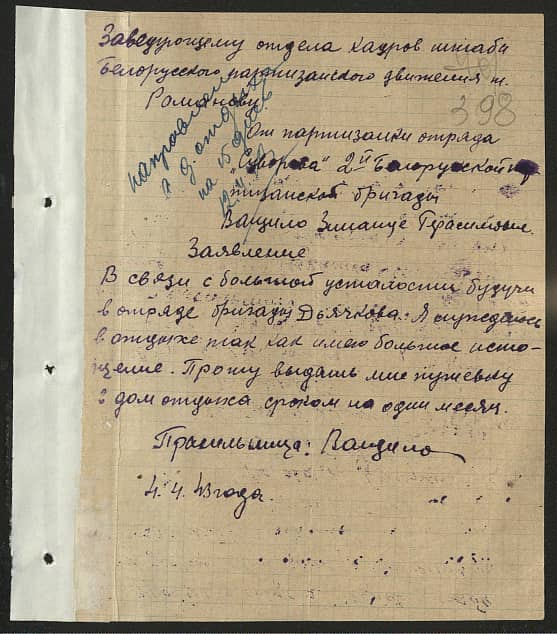 398
Заведующему отдела кадров штаба
Белорусского партизанского движения т.
Романову
направлена
в д. отдыха
на 15 дней
От партизанки отряда
"Суворова" 2й Белоруской пар
тизанской бригады
Ващило Зинаиде Герасимовн.
Заявление
В связи с большой усталостии будучи
в отряде бригады Дьячкова. Я нуждаюсь
в отдыхе так как имею большое исто-
щение. Прошу выдать мне путевку
в дом отдыха сроком на один месяц.
Просильщица: Ващило
4. 4. 43 года.